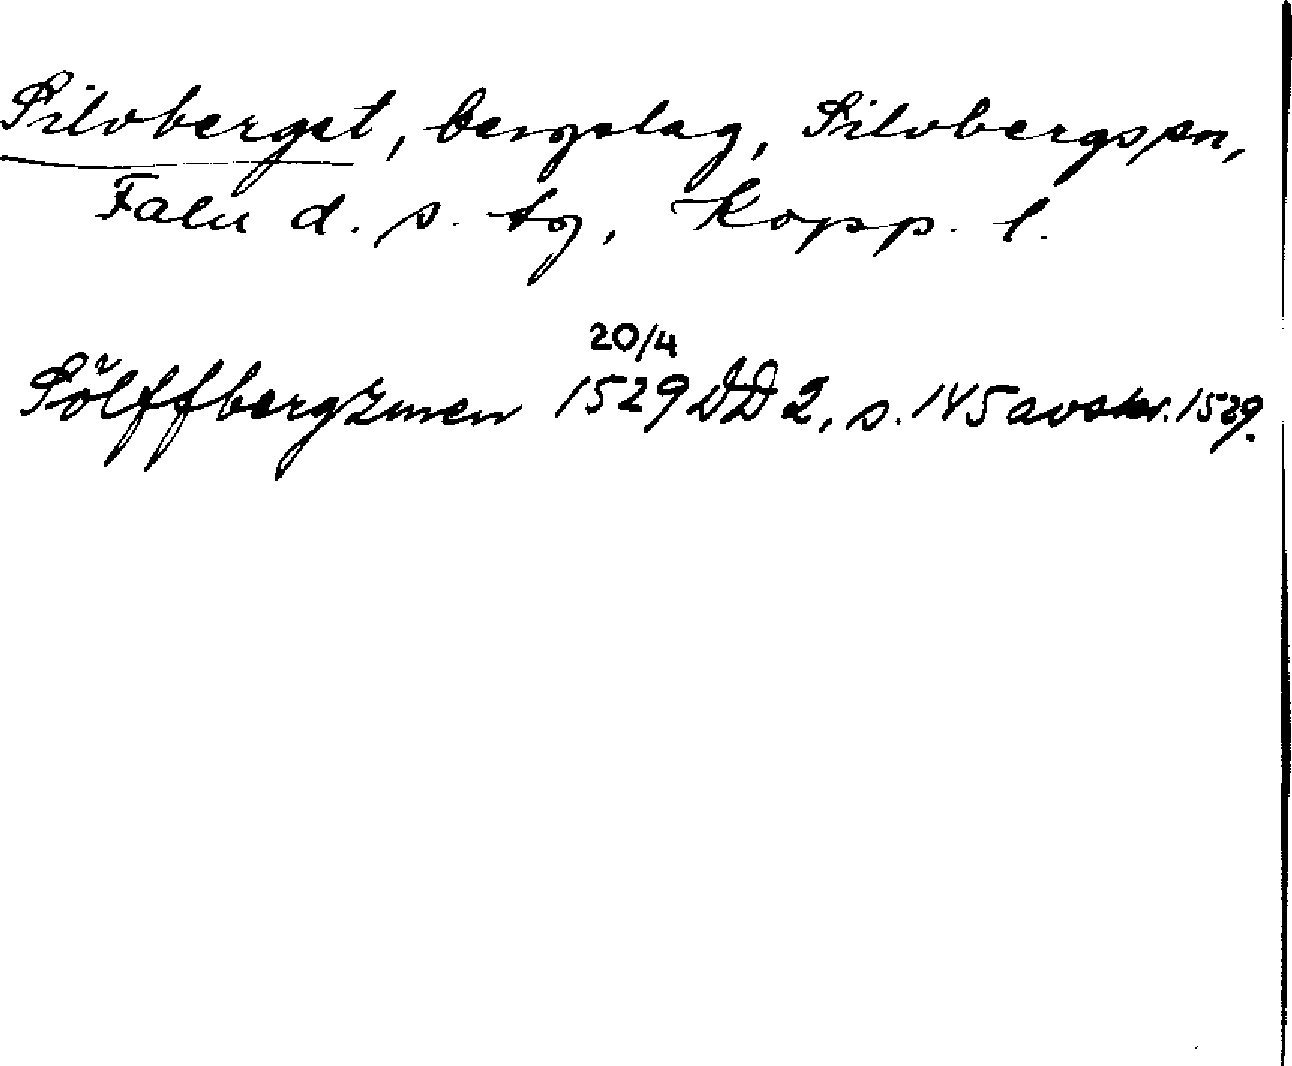 Silvberget, bergslag, Silvbergs sn,
Falu d. s. tg, Kopp. l.
20/4
Sölffbergzmen 1529 DD 2, s. 145 avskr. 1529.